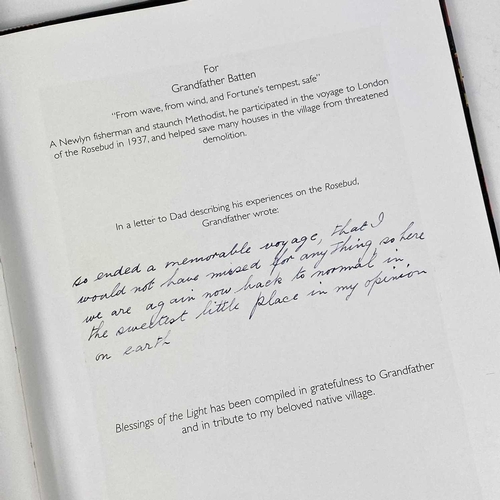 For
Grandfather Batten
"From wave, from wind, and Fortune's tempest, safe"
A Newlyn fisherman and staunch Methodist, he participated in the voyage to London
of the Rosebud in 1937, and helped save many houses in the village from threatened
demolition.
In a letter to Dad describing his experiences on the Rosebud,
Grandfather wrote:
so ended a memorable voyage, that I
would not have missed for anything, so here
we are again now back to normal in
the sweetest little place in my opinion
on earth
Blessings of the Light has been compiled in gratefulness to Grandfather
and in tribute to my beloved native village.